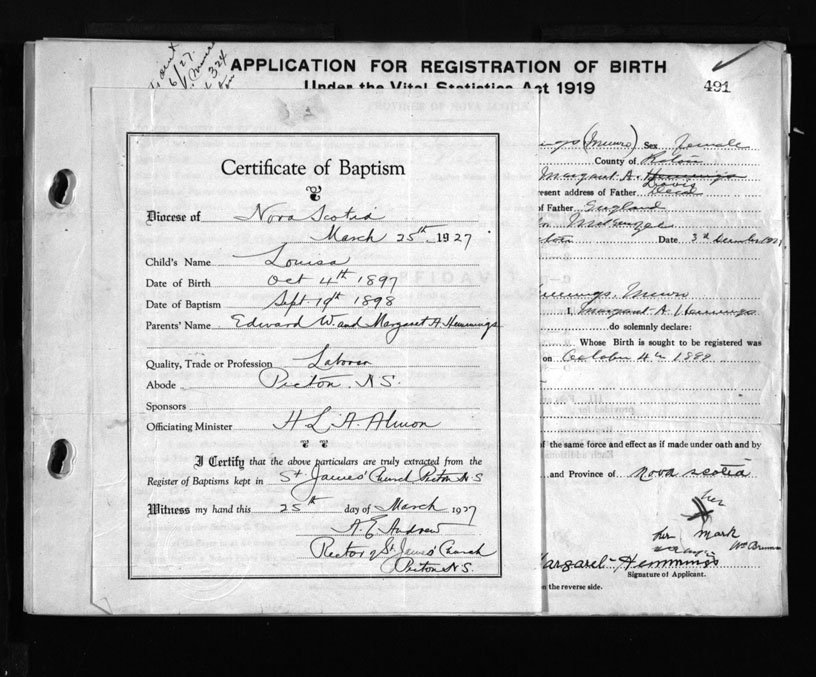 APPLICATION FOR REGISTRATION OF BIRTH
Under the Vital Statistics Act 1919
491
6/27.
324
Certificate of Baptism
Diocese of Nova Scotia
March 25th 1927
Child's Name Louisa
Date of Birth Oct 4th 1897
Date of Baptism Sept 19th 1898
Parents' Name Edward W. and Margaret A. Hemmings
Quality, Trade or Profession Laborer
Abode Pictou, N.S.
Sponsors
Officiating Minister H L A. Almon
I Certify that the above particulars are truly extracted from the
Register of Baptisms kept in St. James' Church Pictou N S
Witness my hand this 25th day of March 1927
A. E. Andrew
Rector of St. James' Church
Pictou N.S.
(Munro) Sex Female
County of
Margaret A. Hemmings
Davis
resent address of Father Dead
of Father England
Date 3d
Munro
I, Margaret A Hemmings
do solemnly declare:
Whose Birth is sought to be registered was
on October 4th 1899
f the same force and effect as if made under oath and by
and Province of Nova Scotia
her
X
her mark
Margaret Hemmings
Signature of Applicant.
n the reverse side.